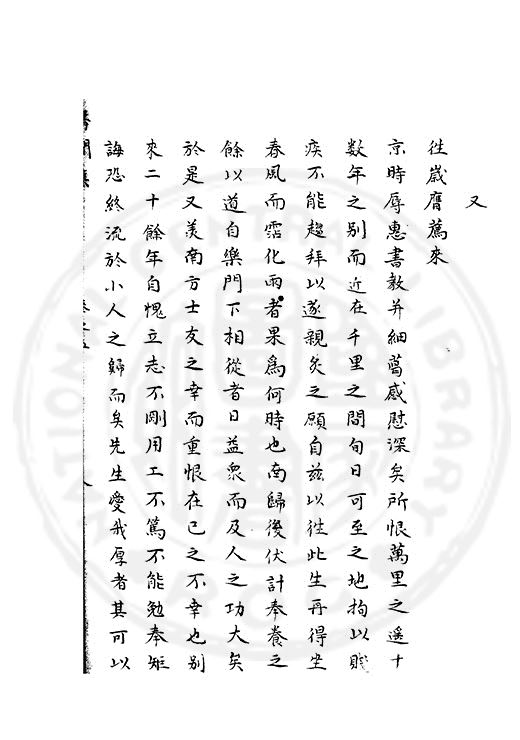 又
徃歲膺薦來
京時辱惠書教并細蔼感慰深矣所恨萬里之遙十
数年之别而近在千里之間旬日可至之地拘以賤
疾不能趍拜以遂親炙之願自兹以徃此生再得坐
春風而霑化雨者果為何時也南歸後伏計奉養之
餘以道自樂門下相從者日益衆而及人之功大矣
於是又羙南方士友之幸而重恨在已之不幸也别
來二十餘年自愧立志不剛用工不篤不能勉奉矩
誨恐終流於小人之歸而矣先生愛我厚者其可以